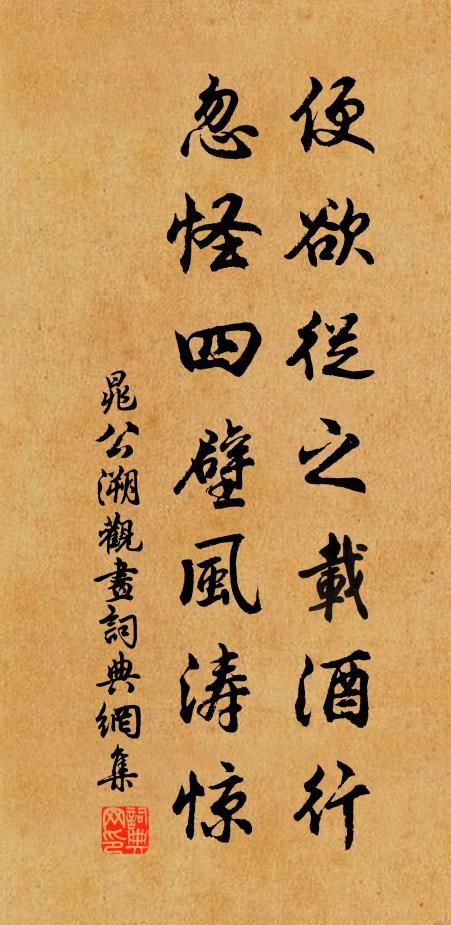 便欲從之載酒行
忽怪四壁風涛惊
晁公溯觀畫詞典網集
詞典网印